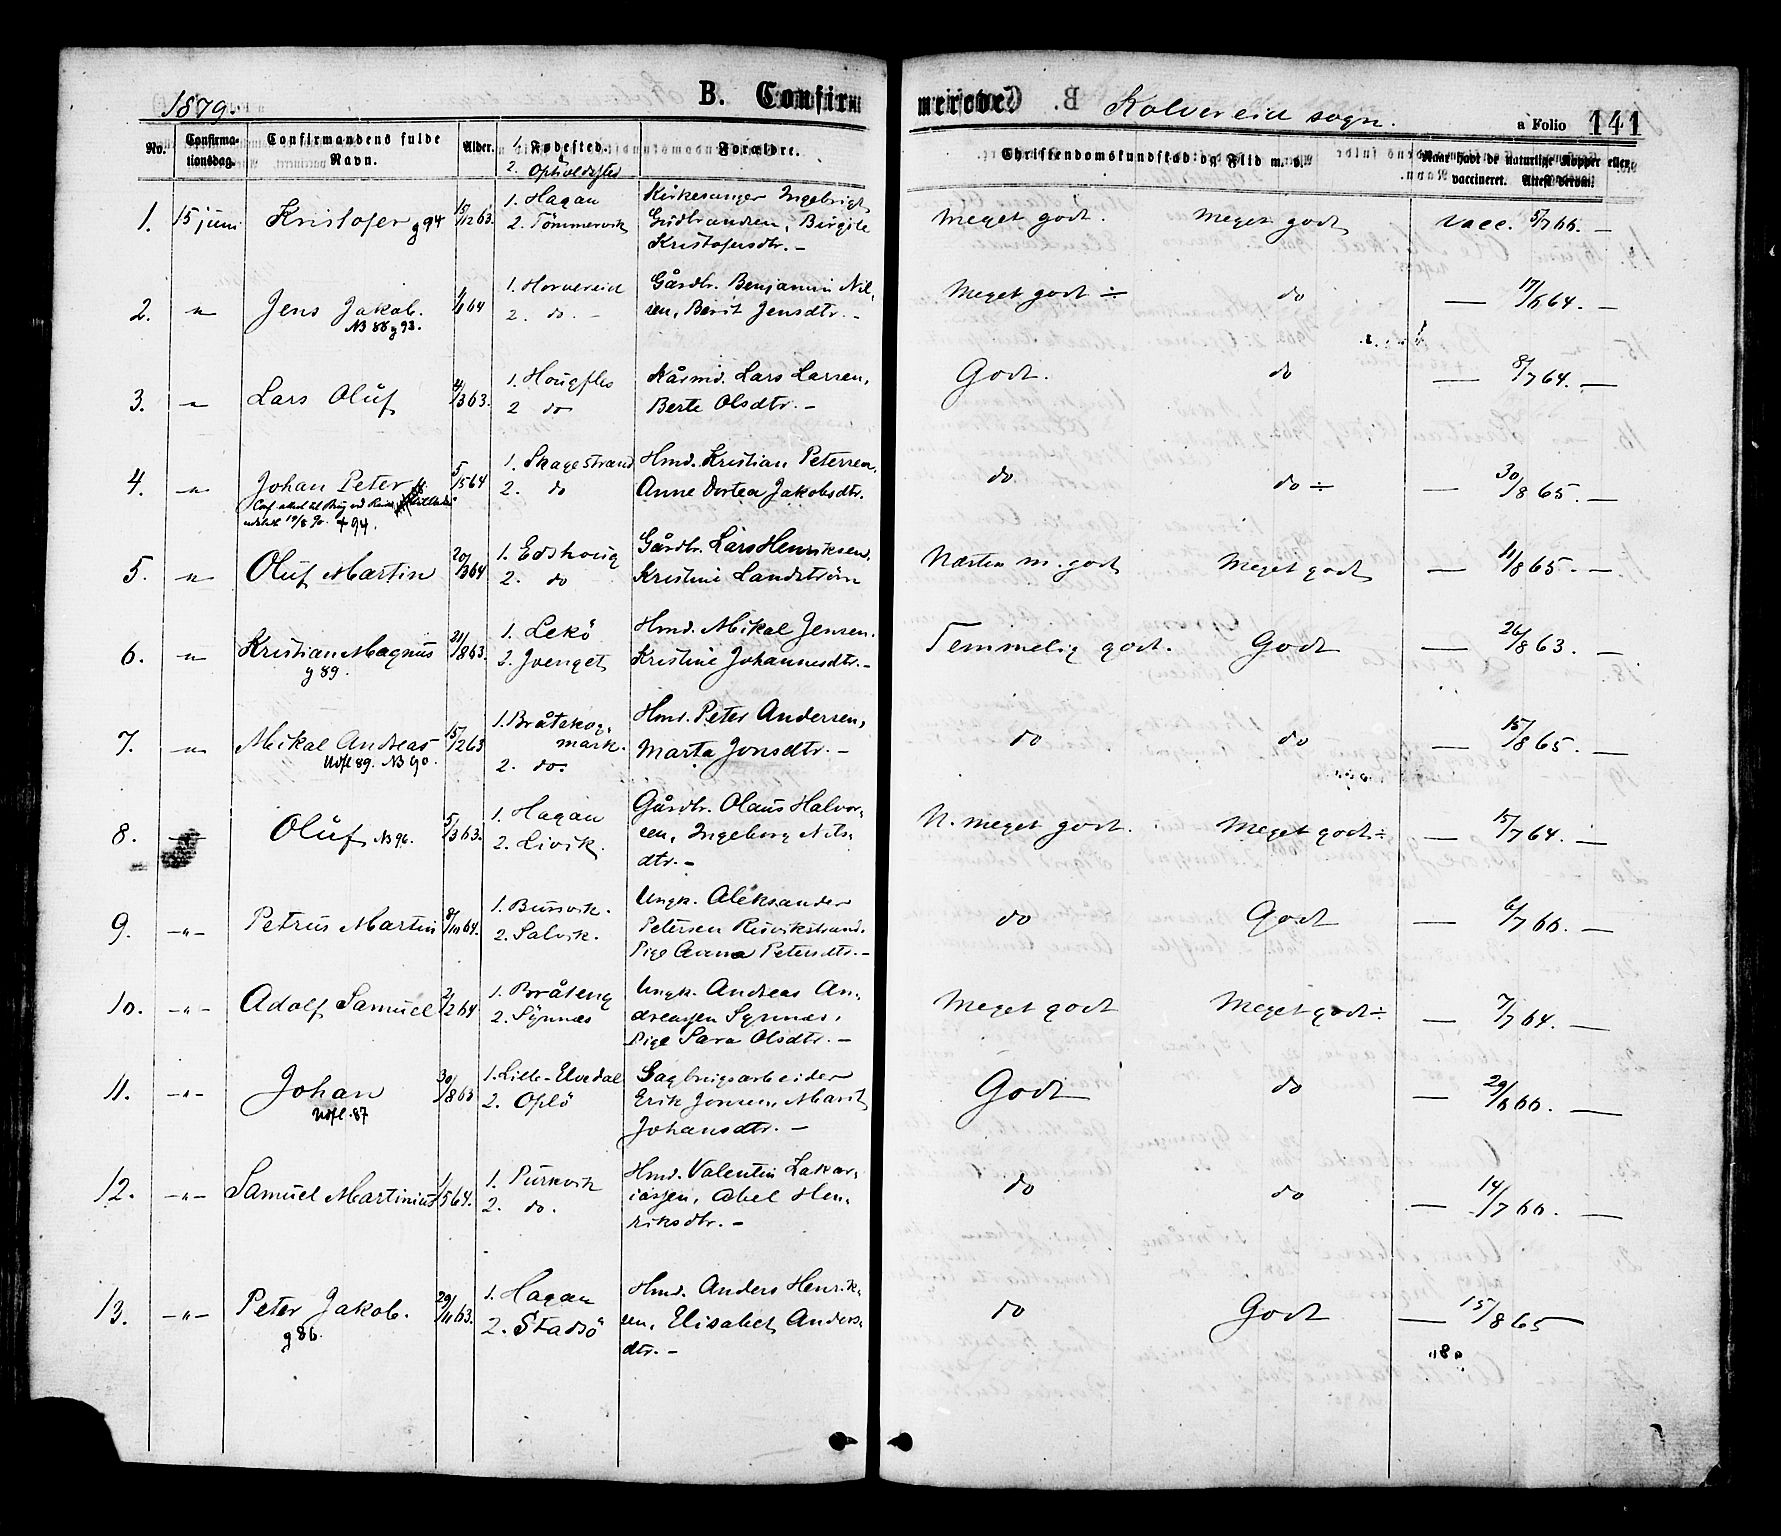 1879.
B. Confirmerede.
Kolvereid sogn.
a Folio 141
No. Confirmationsdag. Confirmandens fulde Navn. Alder. 1. Fødested. 2. Opholdssted Forældre. Christendomskundskab og Flid m. v. Naar havt de naturlige Kopper eller vaccineret. Attest derom.
1. 15 juni Kristofer g 94 15/12 63. 1. Hagan 2. Tömmervik Kirkesanger Ingebrigt Gudbrandsen, Birgite Kristofersdtr. – Meget godt. Meget godt Vacc. 5/7 66. –
2. " Jens Jakob. NB 88 g 93. 1/1 64 1. Horvereid 2. do. – Gårdbr. Benjamin Nilsen, Berit Jensdtr. – Meget godt ÷ do — 17/6 64. –
3. " Lars Oluf 4/3 63. 1. Hougfles 2 do Kårmd. Lars Larsen, Berte Olsdtr. – Godt. do — 8/7 64. –
4. " Johan Peter 94. 5/5 64 1. Skagestrand 2. do Hmd. Kristian Petersen, Anne Dortea Jakobsdtr. do do ÷ — 30/8 65. –
5. " Oluf Martin 20/3 64 1. Edshoug 2. do Gårdbr. Lars Henriksen, Kristine Landström Næsten m. godt Meget godt — 11/8 65. –
6. " Kristian Magnus g 89. 21/8 63. 1. Lekö 2. Jvenget Hmd. Mikal Jensen. Kristine Johannesdtr. – Temmelig godt. Godt — 26/8 63. –
7. " Mikal Andreas Udfl 89. NB 90. 15/12 63 1. Bråtskogmark. 2. do. Hmd. Peter Andersen, Marta Jonsdtr. – do do — 15/8 65. –
8. " Oluf NB 96. 5/3 63. 1. Hagan 2. Livik. Gårdbr. Olaus Halvorsen, Ingeborg Nilsdtr. – N. meget godt. Meget godt ÷ — 15/7 64. –
9. -"- Petrus Martin 8/10 64. 1. Bursvik. 2. Salvik. Ungk. Aleksander Petersen Risvikstrand. Pige Anna Petersdtr. – do Godt — 6/7 66. –
10. -"- Adolf Samuel 2/2 64 1. Bråteng 2. Synnæs Ungk. Andreas Andreassen Synnæs, Pige Sara Olsdtr. – Meget godt Meget godt ÷ — 7/7 64. –
11. -"- Johan Udfl. 87 30/8 63 1. Lille-Elvedal 2. Oplö Sagbrugsarbeider Erik Jonsen, Marit Johansdtr. – Godt do — 29/6 66. –
12. -"- Samuel Martinius 1/5 64. 1. Purkvik 2. do. Hmd. Valentin Zakariassen, Abel Henriksdtr. – do do — 14/7 66. –
13. -"- Peter Jakob. g 86. 29/11 63. 1. Hagan 2. Stadsö Hmd. Anders Henriksen, Elisabet Andersdtr. – do Godt — 15/8 65 –